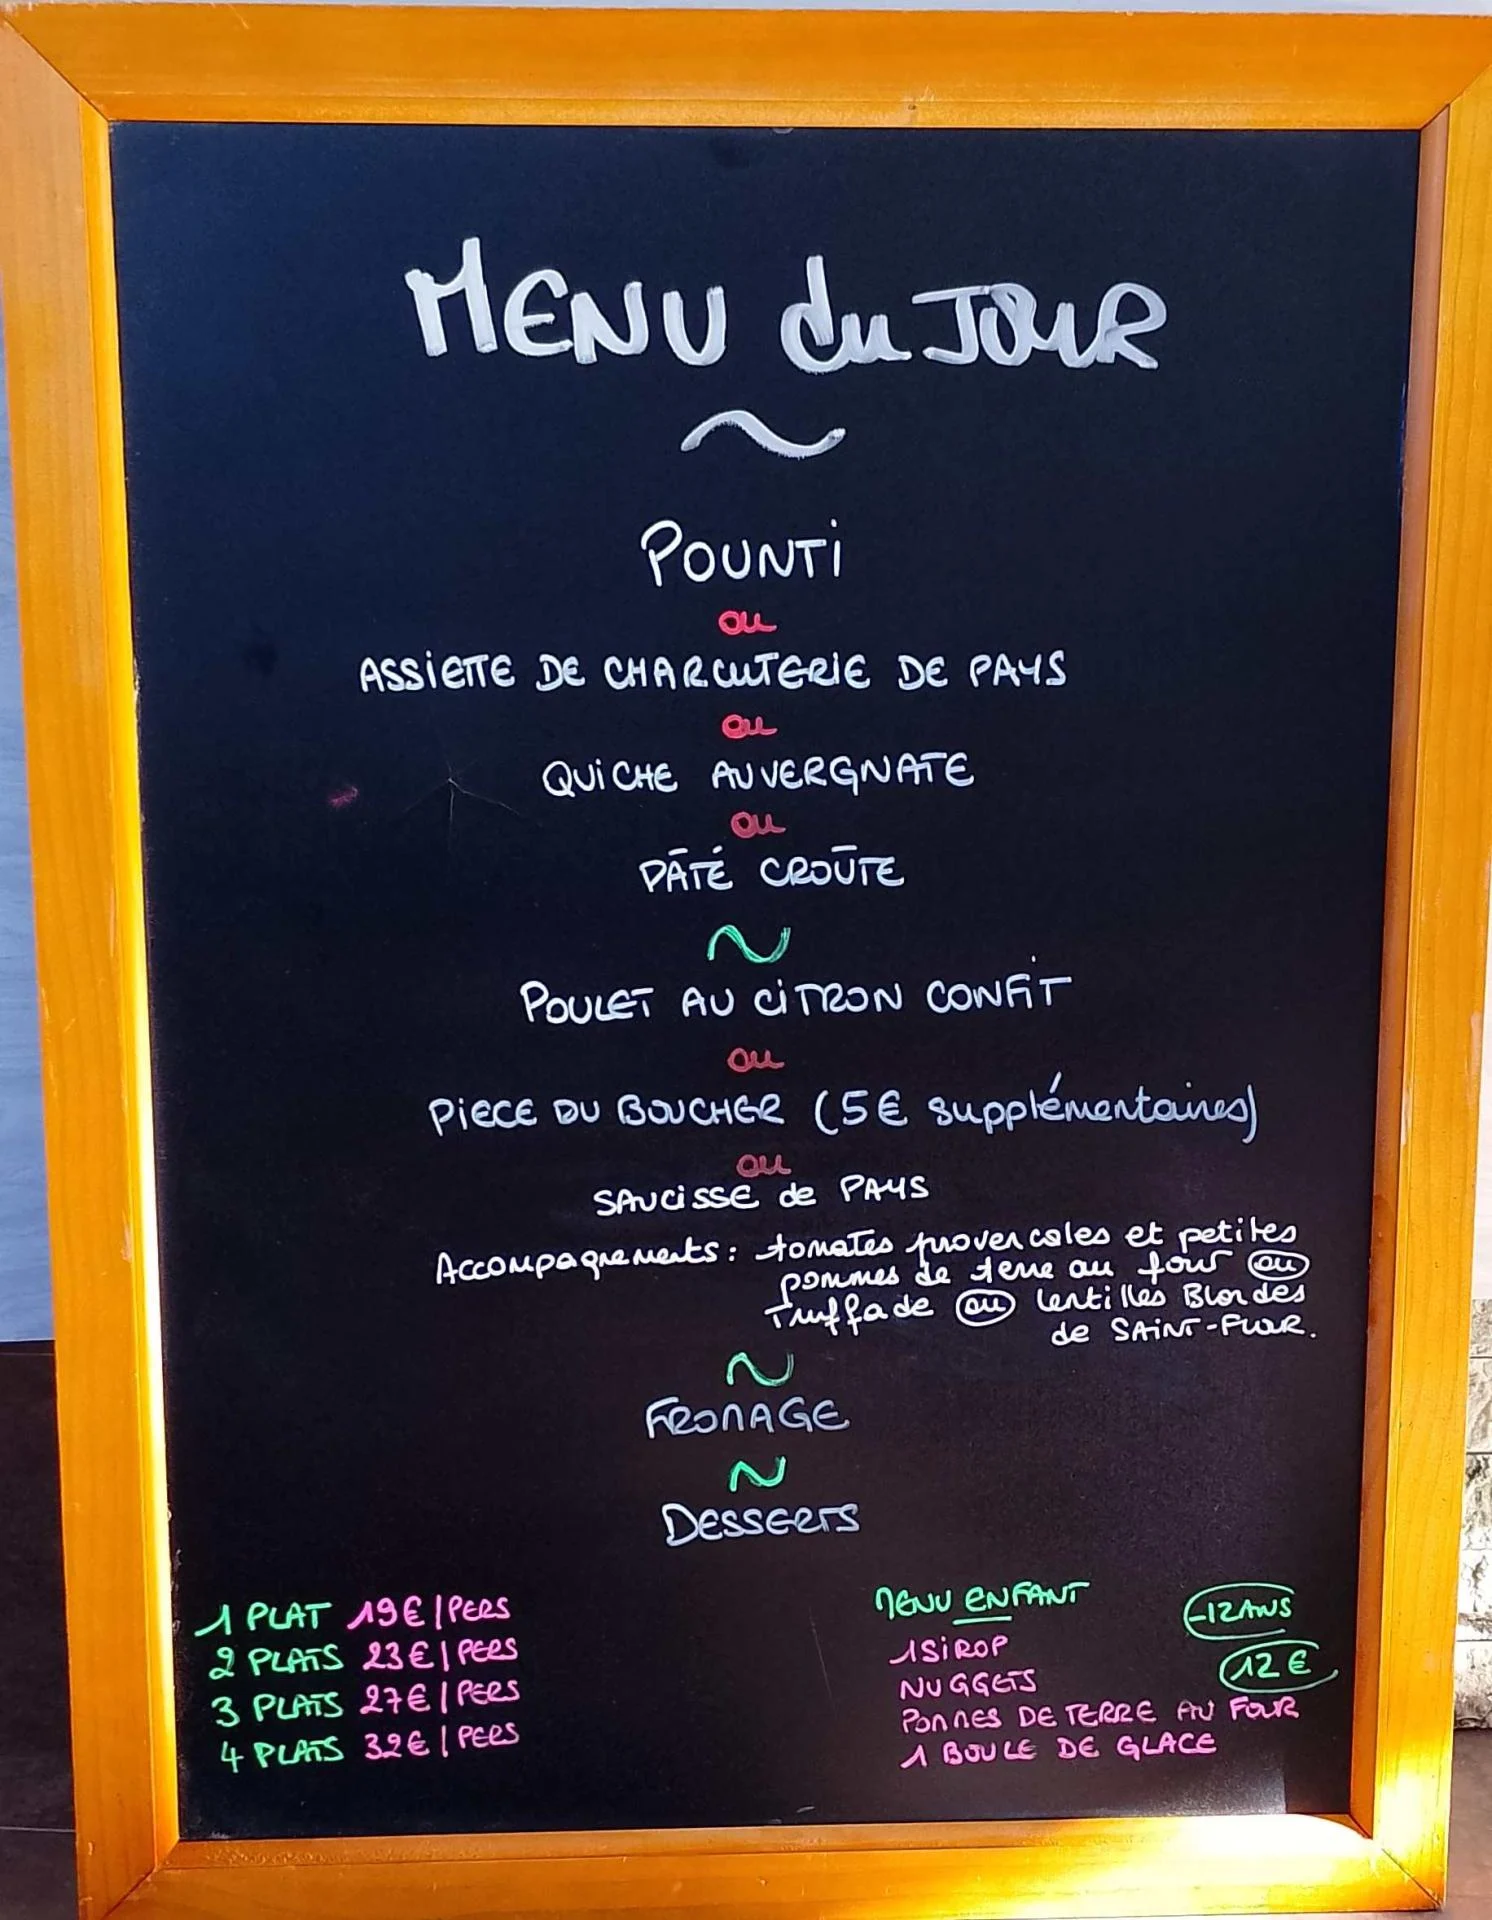 MENU du JOUR
POUNTi
ou
ASSiETTE DE CHARCUTERIE DE PAYS
ou
QUiCHE AUVERGNATE
ou
PÂTÉ CROÛTE
POULET AU CiTRON CONFiT
ou
PiECE DU BOUCHER (5€ supplémentaires)
ou
SAUCiSSE de PAYS
Accompagnements : tomates provencales et petites
pommes de terre au four ou
Truffade ou lentilles Blondes
de SAiNT-FLOUR.
FROMAGE
DESSERTS
1 PLAT 19€ / PERS
2 PLATS 23€ / PERS
3 PLATS 27€ / PERS
4 PLATS 32€ / PERS
MENU ENFANT -12ANS
1 SiROP 12€
NUGGETS
POMMES DE TERRE AU FOUR
1 BOULE DE GLACE